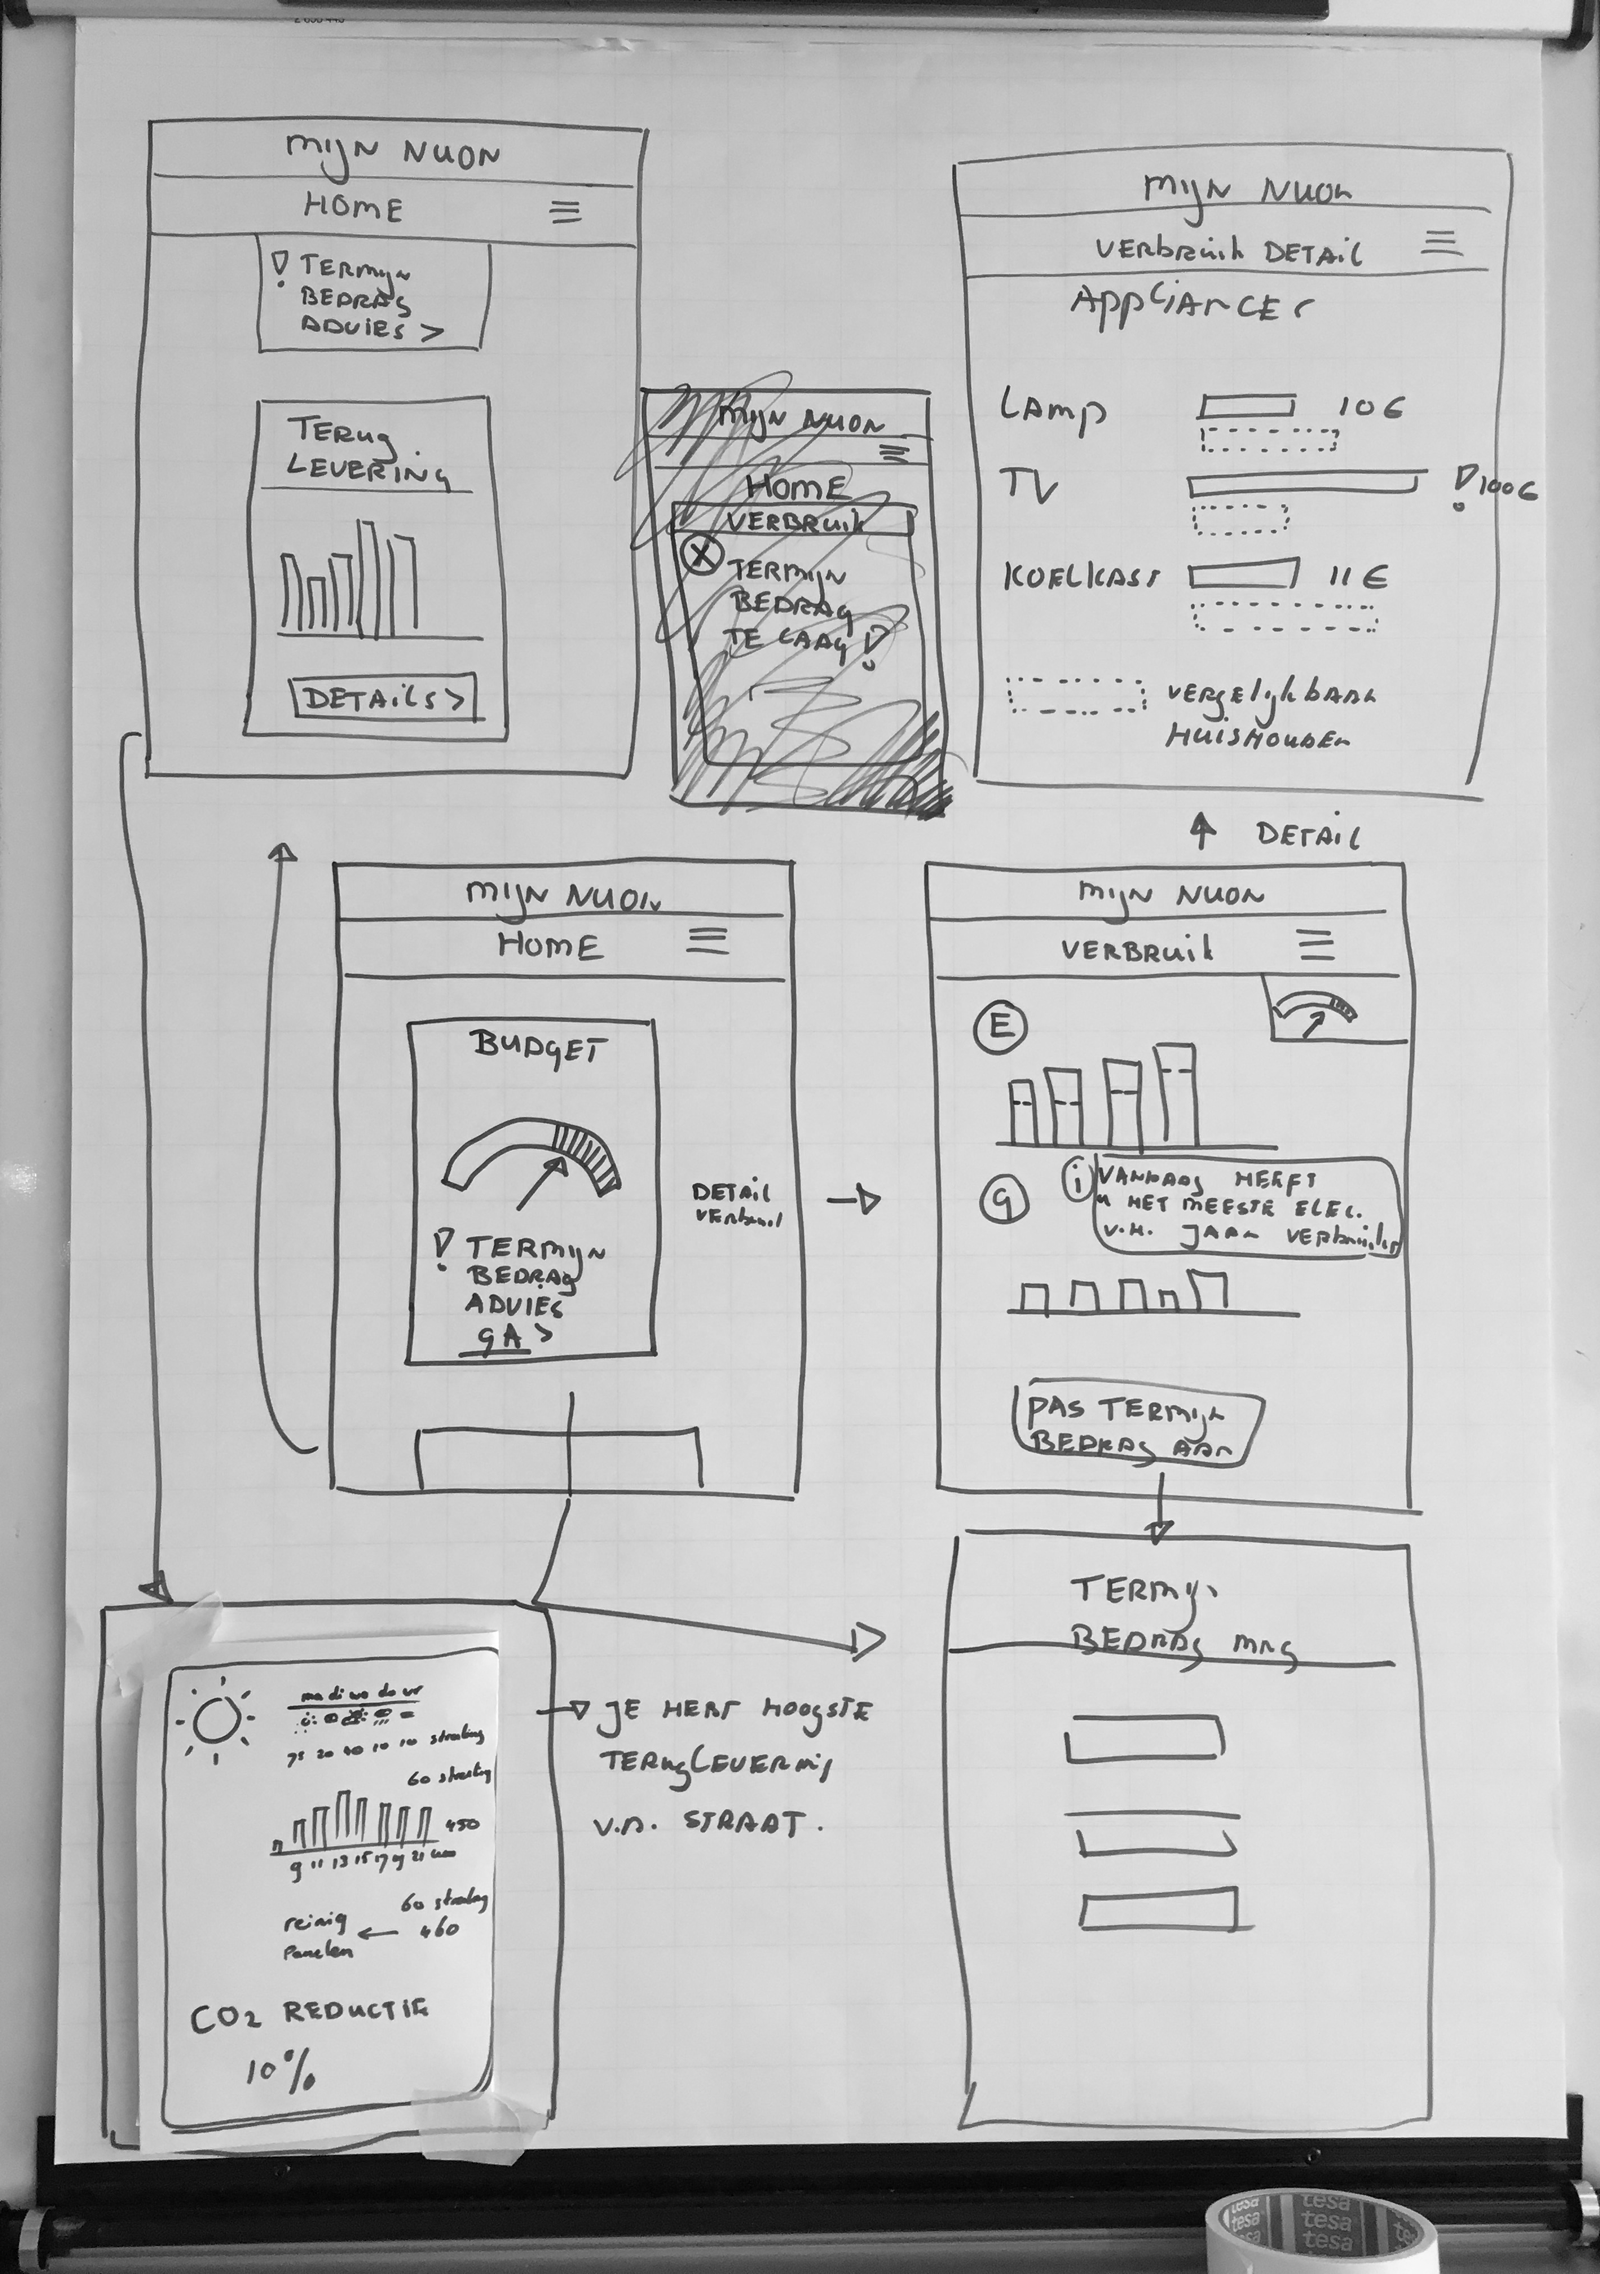 MIJN NUON
HOME
! TERMIJN
BEDRAG
ADVIES >
TERUG
LEVERING
DETAILS >
MIJN NUON
HOME
VERBRUIK
X TERMIJN
BEDRAG
TE LAAG !
MIJN NUON
VERBRUIK DETAIL
APPLIANCES
LAMP 10€
TV ! 100€
KOELKAST 11€
VERGELIJKBAAR
HUISHOUDEN
↑ DETAIL
MIJN NUON
HOME
BUDGET
! TERMIJN
BEDRAG
ADVIES
GA >
DETAIL
VERBRUIK
MIJN NUON
VERBRUIK
E
G
i VANDAAG HEEFT
U HET MEESTE ELEC.
V.H. JAAR VERBRUIKT
PAS TERMIJN
BEDRAG AAN
TERMIJN
BEDRAG
ma di wo do vr
75 20 40 10 10 straling
60 straling
450
9 11 13 15 17 19 21
60 straling
reinig ← 460
Panelen
CO2 REDUCTIE
10%
JE HEBT HOOGSTE
TERUGLEVERING
V.D. STRAAT.
tesa
tesa
tesa
tesa
tesa